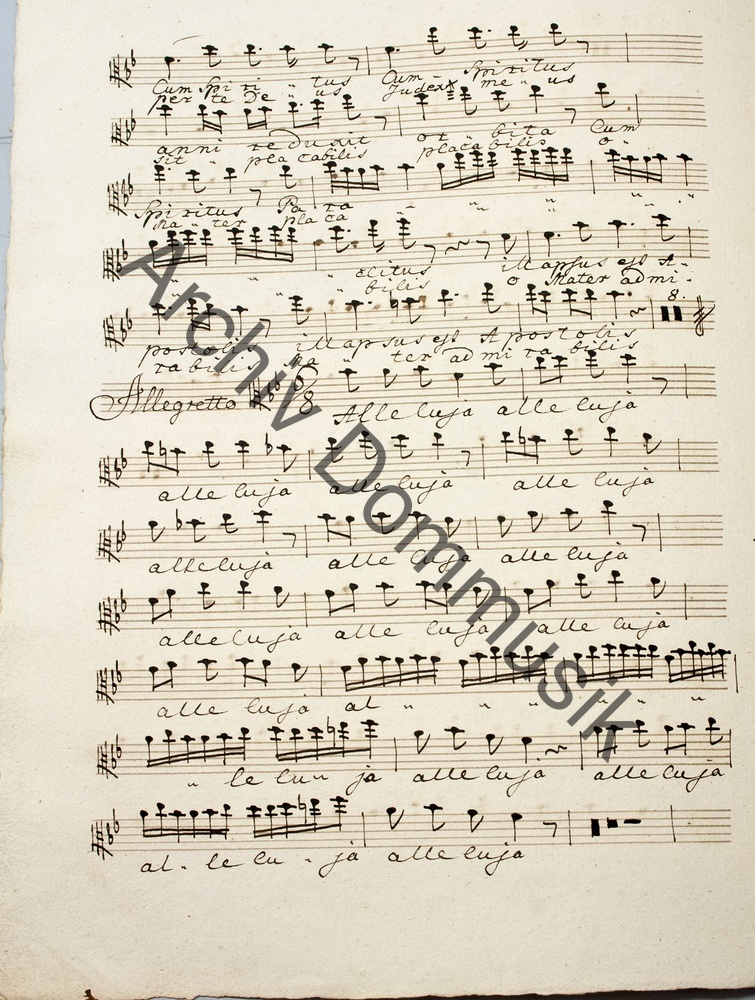 Cum Spiri " tus Cum - Spiritus
per te De " us Judex me " us
anni reduxit or " bita Cum
sit " placabilis placabilis o "
Spiritus Pa ra " " " " "
Ma " ter pla ca
" " " clitus illapsus est A "
" bilis o Mater admi "
postolis illapsus est Apostolis 8.
rabilis Ma " ter admira " bilis
Allegretto 6/8 Alleluja alleluja
alleluja alleluja alleluja
alleluja alleluja alleluja
alleluja alle luja alle luja
alle luja al " " " " " "
" le lu " ja alleluja alleluja
al - le lu - ja alleluja
Archiv Dommusik